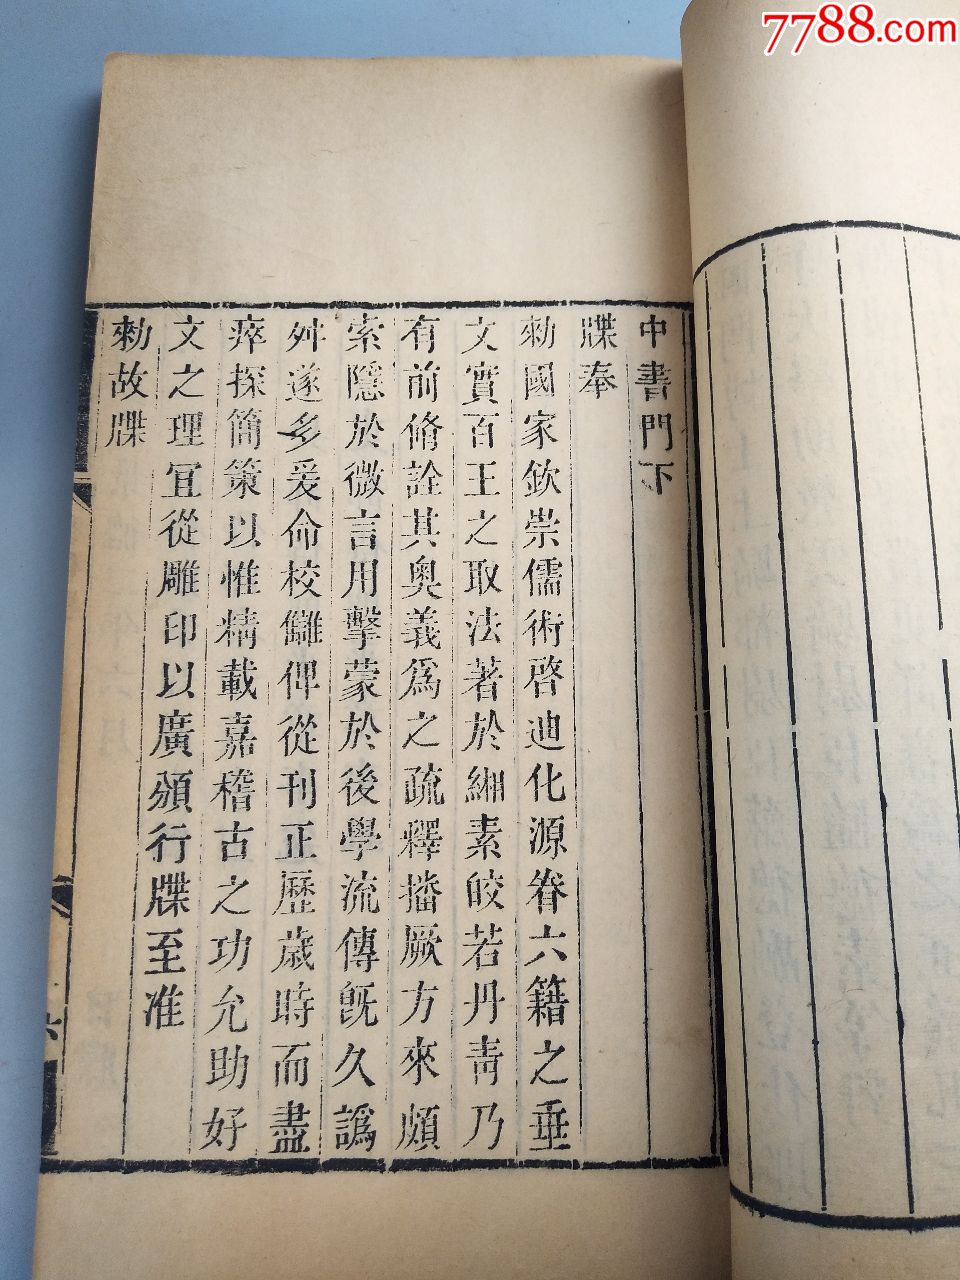 7788.com
中書門下
牒奉
勑國家欽崇儒術啓迪化源眷六籍之垂
文實百王之取法著於緗素皎若丹青乃
有前脩詮其奧義爲之疏釋播厥方來頗
索隱於微言用擊蒙於後學流傳旣久譌
舛遂多爰命校讎俾從刊正歷歲時而盡
瘁探簡策以惟精載嘉稽古之功允助好
文之理冝從雕印以廣頒行牒至准
勑故牒